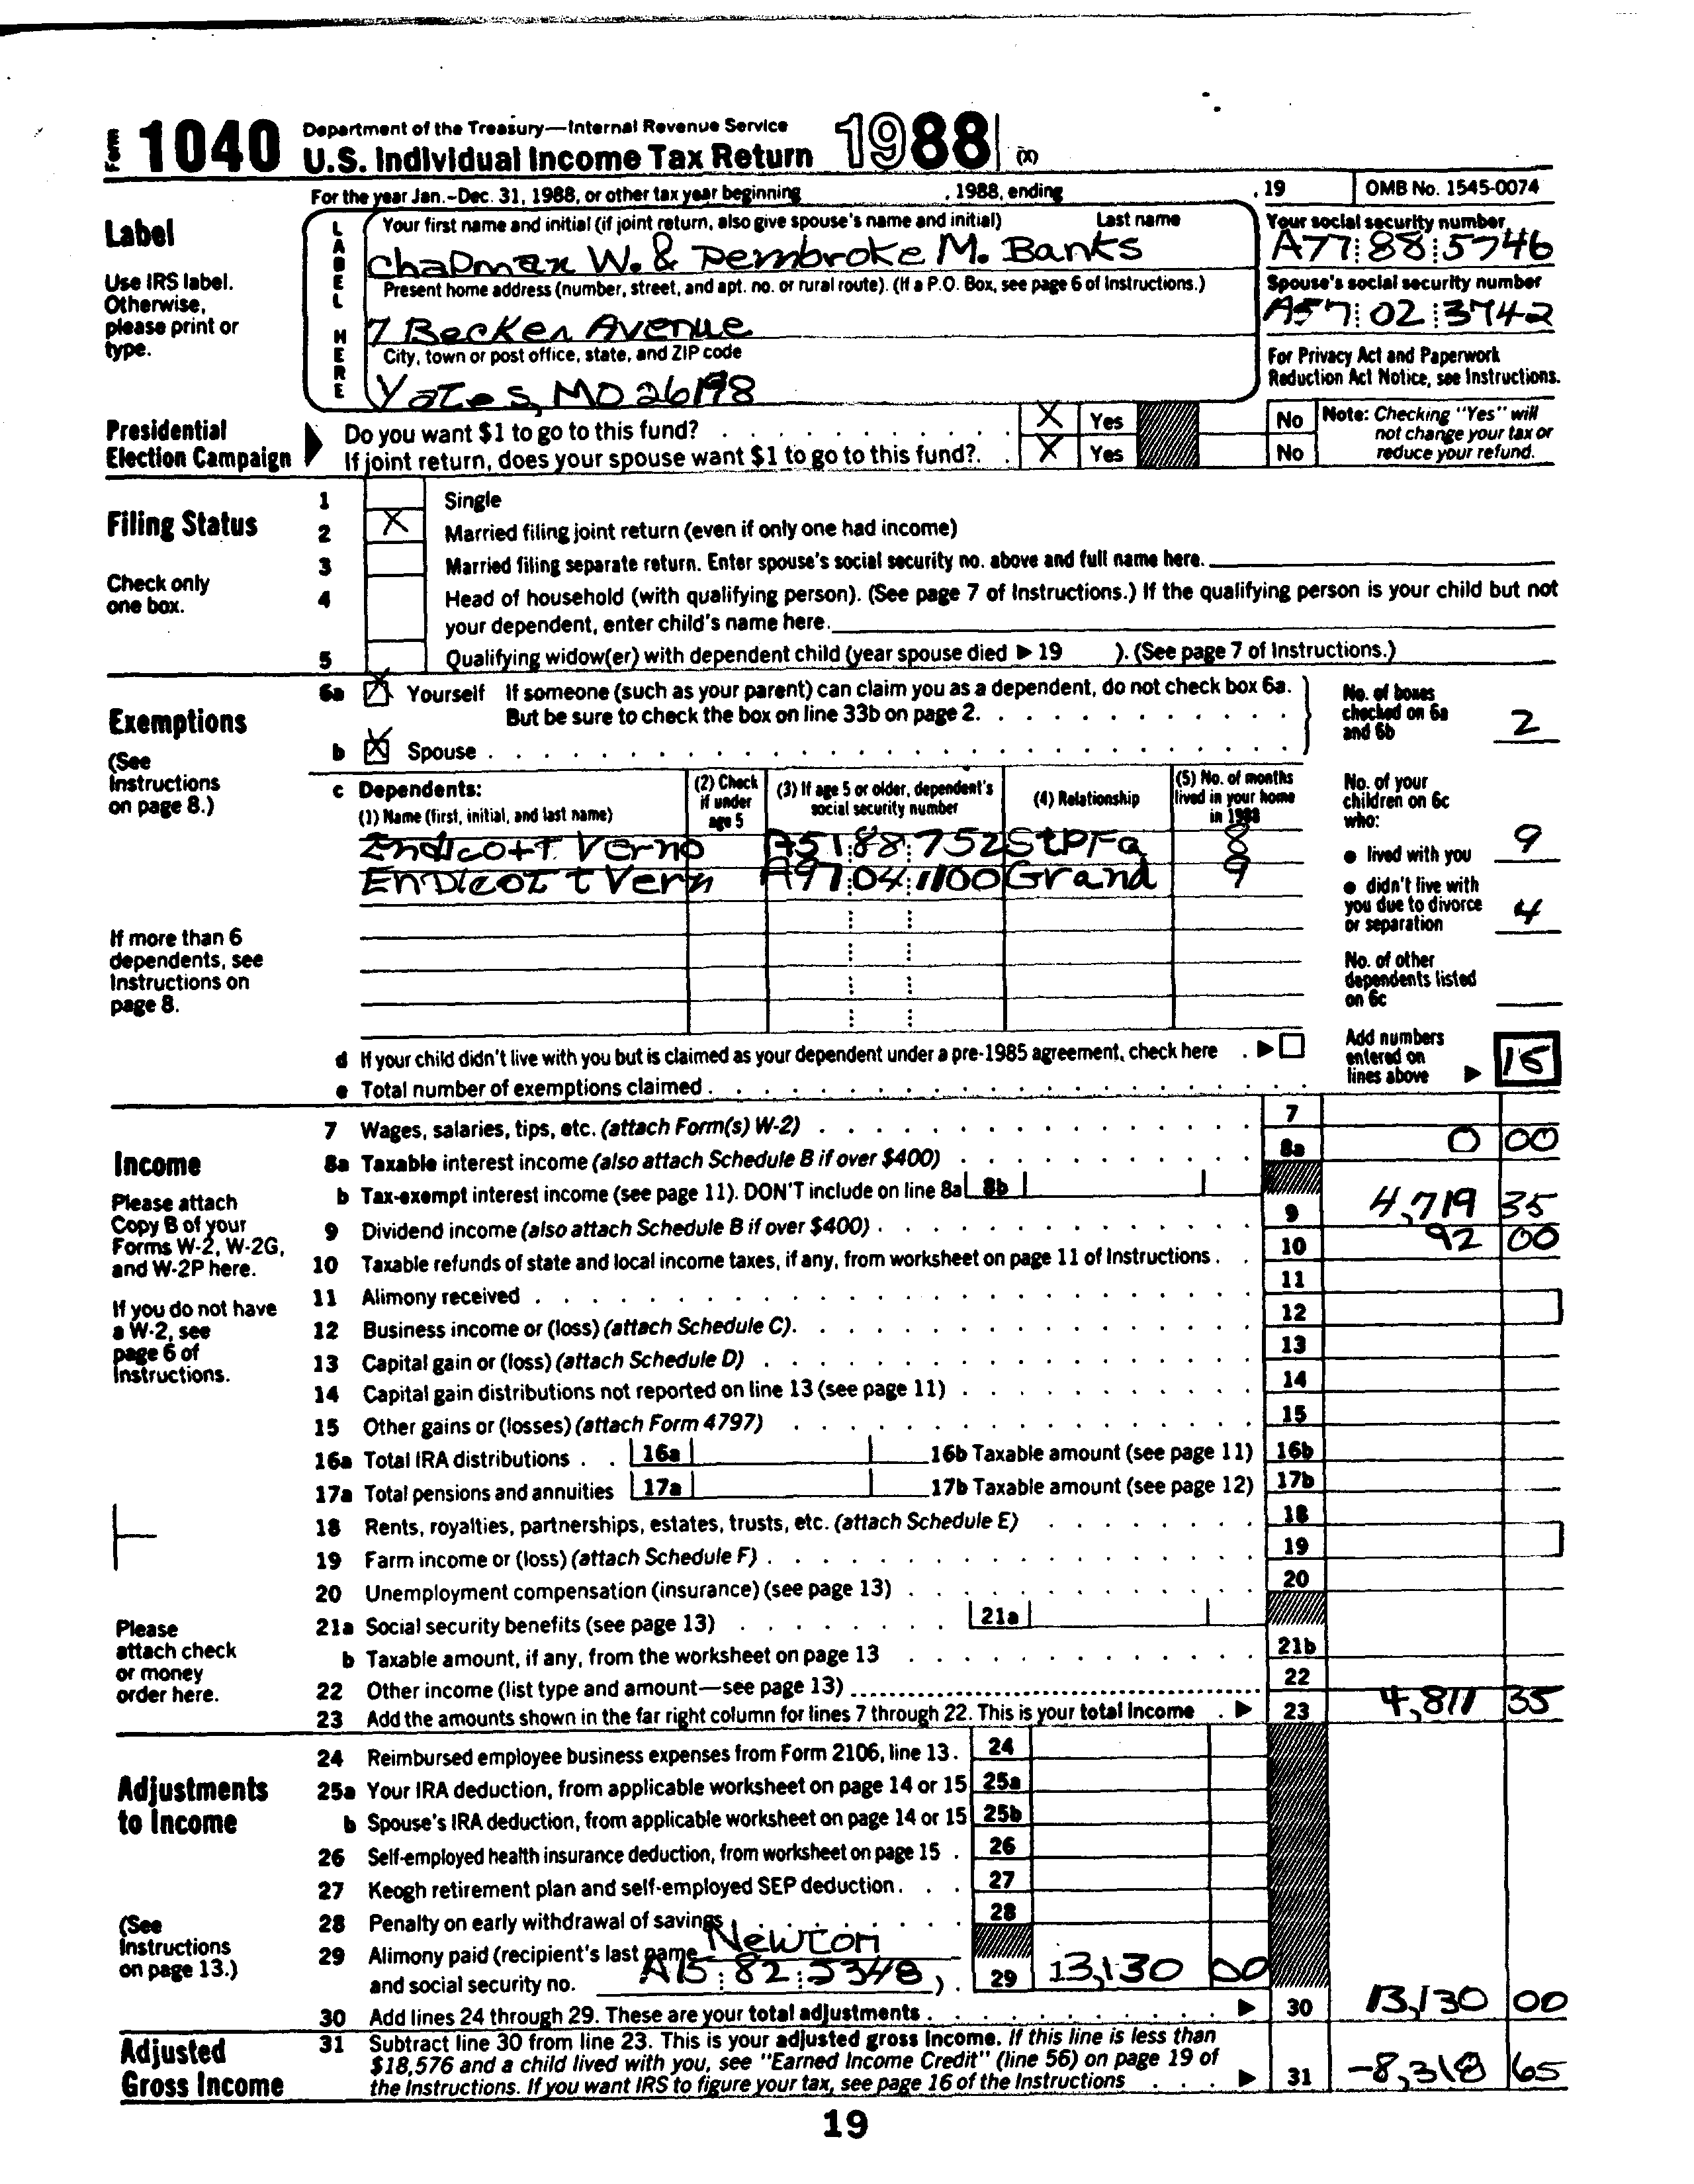 Form 1040 Department of the Treasury—Internal Revenue Service
U.S. Individual Income Tax Return 1988 (X)
For the year Jan.-Dec. 31, 1988, or other tax year beginning , 1988, ending , 19 OMB No. 1545-0074
Label
Use IRS label. Otherwise, please print or type.
LABEL HERE
Your first name and initial (if joint return, also give spouse's name and initial) Last name
Chapman W. & Pembroke M. Banks
Your social security number
A77 88 5746
Present home address (number, street, and apt. no. or rural route). (If a P.O. Box, see page 6 of Instructions.)
7 Becker Avenue
Spouse's social security number
A57 02 3742
City, town or post office, state, and ZIP code
Yates, MO 26198
For Privacy Act and Paperwork Reduction Act Notice, see Instructions.
Presidential Election Campaign
Do you want $1 to go to this fund? X Yes No
If joint return, does your spouse want $1 to go to this fund?. X Yes No
Note: Checking "Yes" will not change your tax or reduce your refund.
Filing Status
Check only one box.
1 Single
2 X Married filing joint return (even if only one had income)
3 Married filing separate return. Enter spouse's social security no. above and full name here.
4 Head of household (with qualifying person). (See page 7 of Instructions.) If the qualifying person is your child but not
your dependent, enter child's name here.
5 Qualifying widow(er) with dependent child (year spouse died ▶ 19 ). (See page 7 of Instructions.)
Exemptions
(See Instructions on page 8.)
6a X Yourself If someone (such as your parent) can claim you as a dependent, do not check box 6a.
But be sure to check the box on line 33b on page 2.
b X Spouse
No. of boxes checked on 6a and 6b 2
c Dependents:
(1) Name (first, initial, and last name)
(2) Check if under age 5
(3) If age 5 or older, dependent's social security number
(4) Relationship
(5) No. of months lived in your home in 1988
Endicott Verno A51 88 752 StPFa 8
Endicott Vern A97 04 1100 Grand 9
If more than 6 dependents, see Instructions on page 8.
No. of your children on 6c who:
● lived with you 9
● didn't live with you due to divorce or separation 4
No. of other dependents listed on 6c
d If your child didn't live with you but is claimed as your dependent under a pre-1985 agreement, check here ▶
e Total number of exemptions claimed
Add numbers entered on lines above ▶ 15
Income
Please attach Copy B of your Forms W-2, W-2G, and W-2P here.
If you do not have a W-2, see page 6 of Instructions.
Please attach check or money order here.
7 Wages, salaries, tips, etc. (attach Form(s) W-2) 7
8a Taxable interest income (also attach Schedule B if over $400) 8a 0 00
b Tax-exempt interest income (see page 11). DON'T include on line 8a 8b
9 Dividend income (also attach Schedule B if over $400) 9 4,719 35
10 Taxable refunds of state and local income taxes, if any, from worksheet on page 11 of Instructions 10 92 00
11 Alimony received 11
12 Business income or (loss) (attach Schedule C). 12
13 Capital gain or (loss) (attach Schedule D) 13
14 Capital gain distributions not reported on line 13 (see page 11) 14
15 Other gains or (losses) (attach Form 4797) 15
16a Total IRA distributions 16a 16b Taxable amount (see page 11) 16b
17a Total pensions and annuities 17a 17b Taxable amount (see page 12) 17b
18 Rents, royalties, partnerships, estates, trusts, etc. (attach Schedule E) 18
19 Farm income or (loss) (attach Schedule F) 19
20 Unemployment compensation (insurance) (see page 13) 20
21a Social security benefits (see page 13) 21a
b Taxable amount, if any, from the worksheet on page 13 21b
22 Other income (list type and amount—see page 13) 22
23 Add the amounts shown in the far right column for lines 7 through 22. This is your total income ▶ 23 4,811 35
Adjustments to Income
(See Instructions on page 13.)
24 Reimbursed employee business expenses from Form 2106, line 13. 24
25a Your IRA deduction, from applicable worksheet on page 14 or 15 25a
b Spouse's IRA deduction, from applicable worksheet on page 14 or 15 25b
26 Self-employed health insurance deduction, from worksheet on page 15 26
27 Keogh retirement plan and self-employed SEP deduction 27
28 Penalty on early withdrawal of savings 28
29 Alimony paid (recipient's last name Newton
and social security no. A15 82 5348 ). 29 13,130 00
30 Add lines 24 through 29. These are your total adjustments ▶ 30 13,130 00
Adjusted Gross Income
31 Subtract line 30 from line 23. This is your adjusted gross income. If this line is less than
$18,576 and a child lived with you, see "Earned Income Credit" (line 56) on page 19 of
the Instructions. If you want IRS to figure your tax, see page 16 of the Instructions ▶ 31 -8,318 65
19